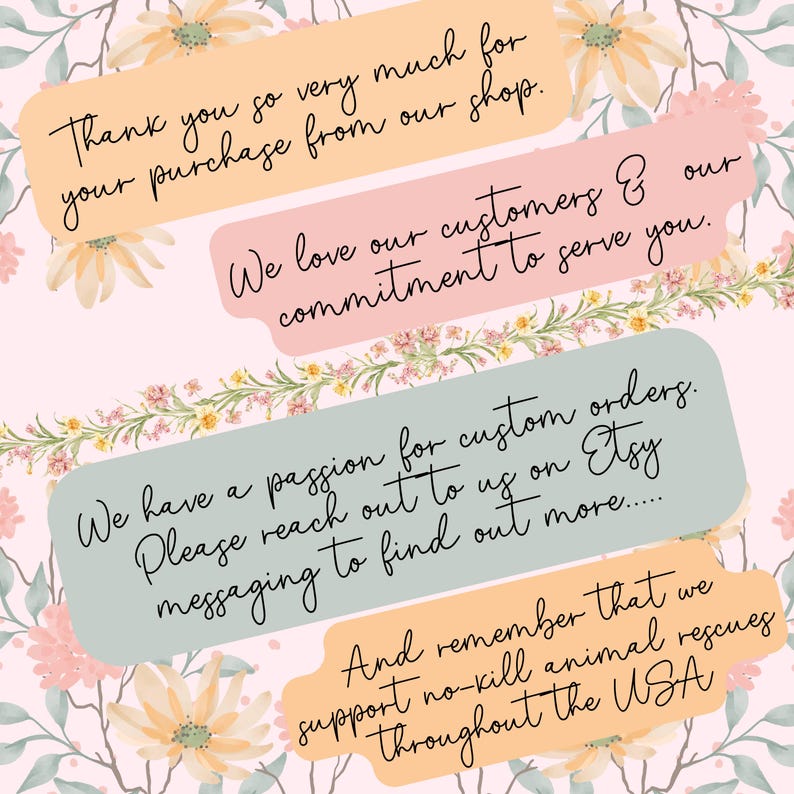 Thank you so very much for
your purchase from our shop.
We love our customers & our
commitment to serve you.
We have a passion for custom orders.
Please reach out to us on Etsy
messaging to find out more.....
And remember that we
support no-kill animal rescues
throughout the USA